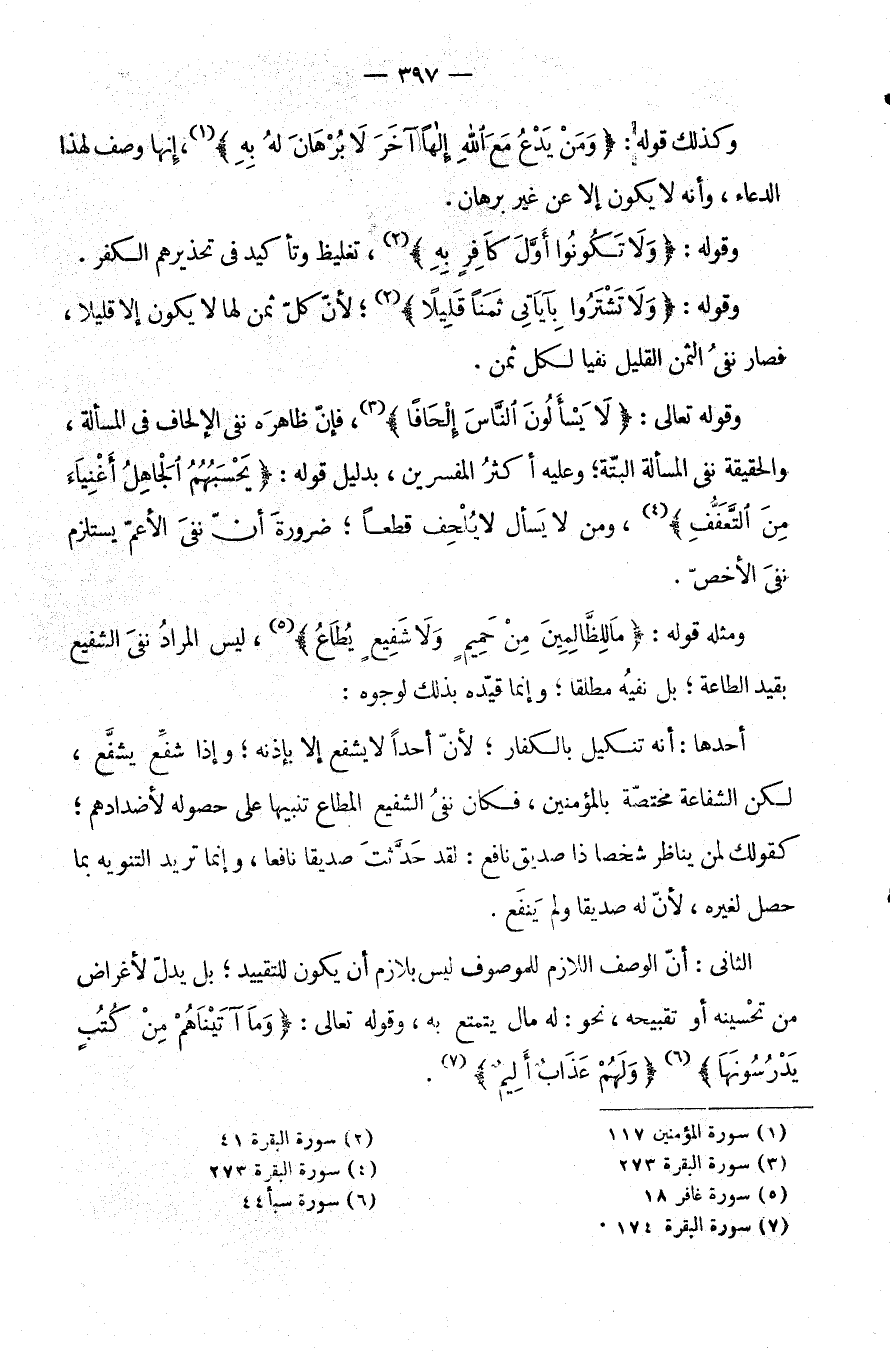 — ٣٩٧ —
وكذلك قوله : ﴿ وَمَنْ يَدْعُ مَعَ ٱللهِ إِلٰهًا آخَرَ لَا بُرْهَانَ لهُ بِهِ ﴾(١)، إنها وصف لهذا
الدعاء ، وأنه لا يكون إلا عن غير برهان .
وقوله : ﴿ وَلَا تَكُونُوا أَوَّلَ كَافِرٍ بِهِ ﴾(٢) ، تغليظ وتأكيد فى تحذيرهم الكفر .
وقوله : ﴿ وَلَا تَشْتَرُوا بِآيَاتِى ثَمَنًا قَلِيلًا ﴾(٢) ؛ لأنّ كلّ ثمن لها لا يكون إلا قليلا ،
فصار نفىُ الثمن القليل نفيا لكل ثمن .
وقوله تعالى : ﴿ لَا يَسْأَلُونَ ٱلنَّاسَ إِلْحَافًا ﴾(٣)، فإنّ ظاهرَه نفى الإلحاف فى المسألة ،
والحقيقة نفى المسألة البتّة؛ وعليه أكثرُ المفسرين ، بدليل قوله : ﴿ يَحْسَبُهُمُ ٱلْجَاهِلُ أَغْنِيَاءَ
مِنَ ٱلتَّعَفُّفِ ﴾(٤) ، ومن لا يَسأل لايُلْحِف قطعـاً ؛ ضرورةَ أنّ نفىَ الأعمّ يستلزم
نفىَ الأخصّ .
ومثله قوله : ﴿ مَالِلظَّالِمِينَ مِنْ حَمِيمٍ وَلَا شَفِيعٍ يُطَاعُ ﴾(٥) ، ليس المرادُ نفىَ الشفيع
بقيد الطاعة ؛ بل نفيُه مطلقا ؛ وإنما قيّده بذلك لوجوه :
أحدها : أنه تنكيل بالكفار ؛ لأنّ أحداً لايشفع إلا بإذنه ؛ وإذا شفِّع يشفَّع ،
لكن الشفاعة مختصّة بالمؤمنين ، فكان نفىُ الشفيع المطاع تنبيها على حصوله لأضدادهم ؛
كقولك لمن يناظر شخصا ذا صديق نافع : لقد حَدَّثتَ صديقا نافعا ، وإنما تريد التنويه بما
حصل لغيره ، لأنّ له صديقا ولم يَنفَع .
الثانى : أنّ الوصف اللازم للموصوف ليس بلازم أن يكون للتقييد ؛ بل يدلّ لأغراض
من تحْسينه أو تقبيحه ، نحو : له مال يتمتع به ، وقوله تعالى : ﴿ وَمَا آتَيْنَاهُمْ مِنْ كُتُبٍ
يَدْرُسُونَهَا ﴾ (٦) ﴿ وَلَهُمْ عَذَابٌ أَلِيمٌ ﴾ (٧) .
(١) سورة المؤمنين ١١٧ (٢) سورة البقرة ٤١
(٣) سورة البقرة ٢٧٣ (٤) سورة البقرة ٢٧٣
(٥) سورة غافر ١٨ (٦) سورة سبأ ٤٤
(٧) سورة البقرة ١٧٤ .